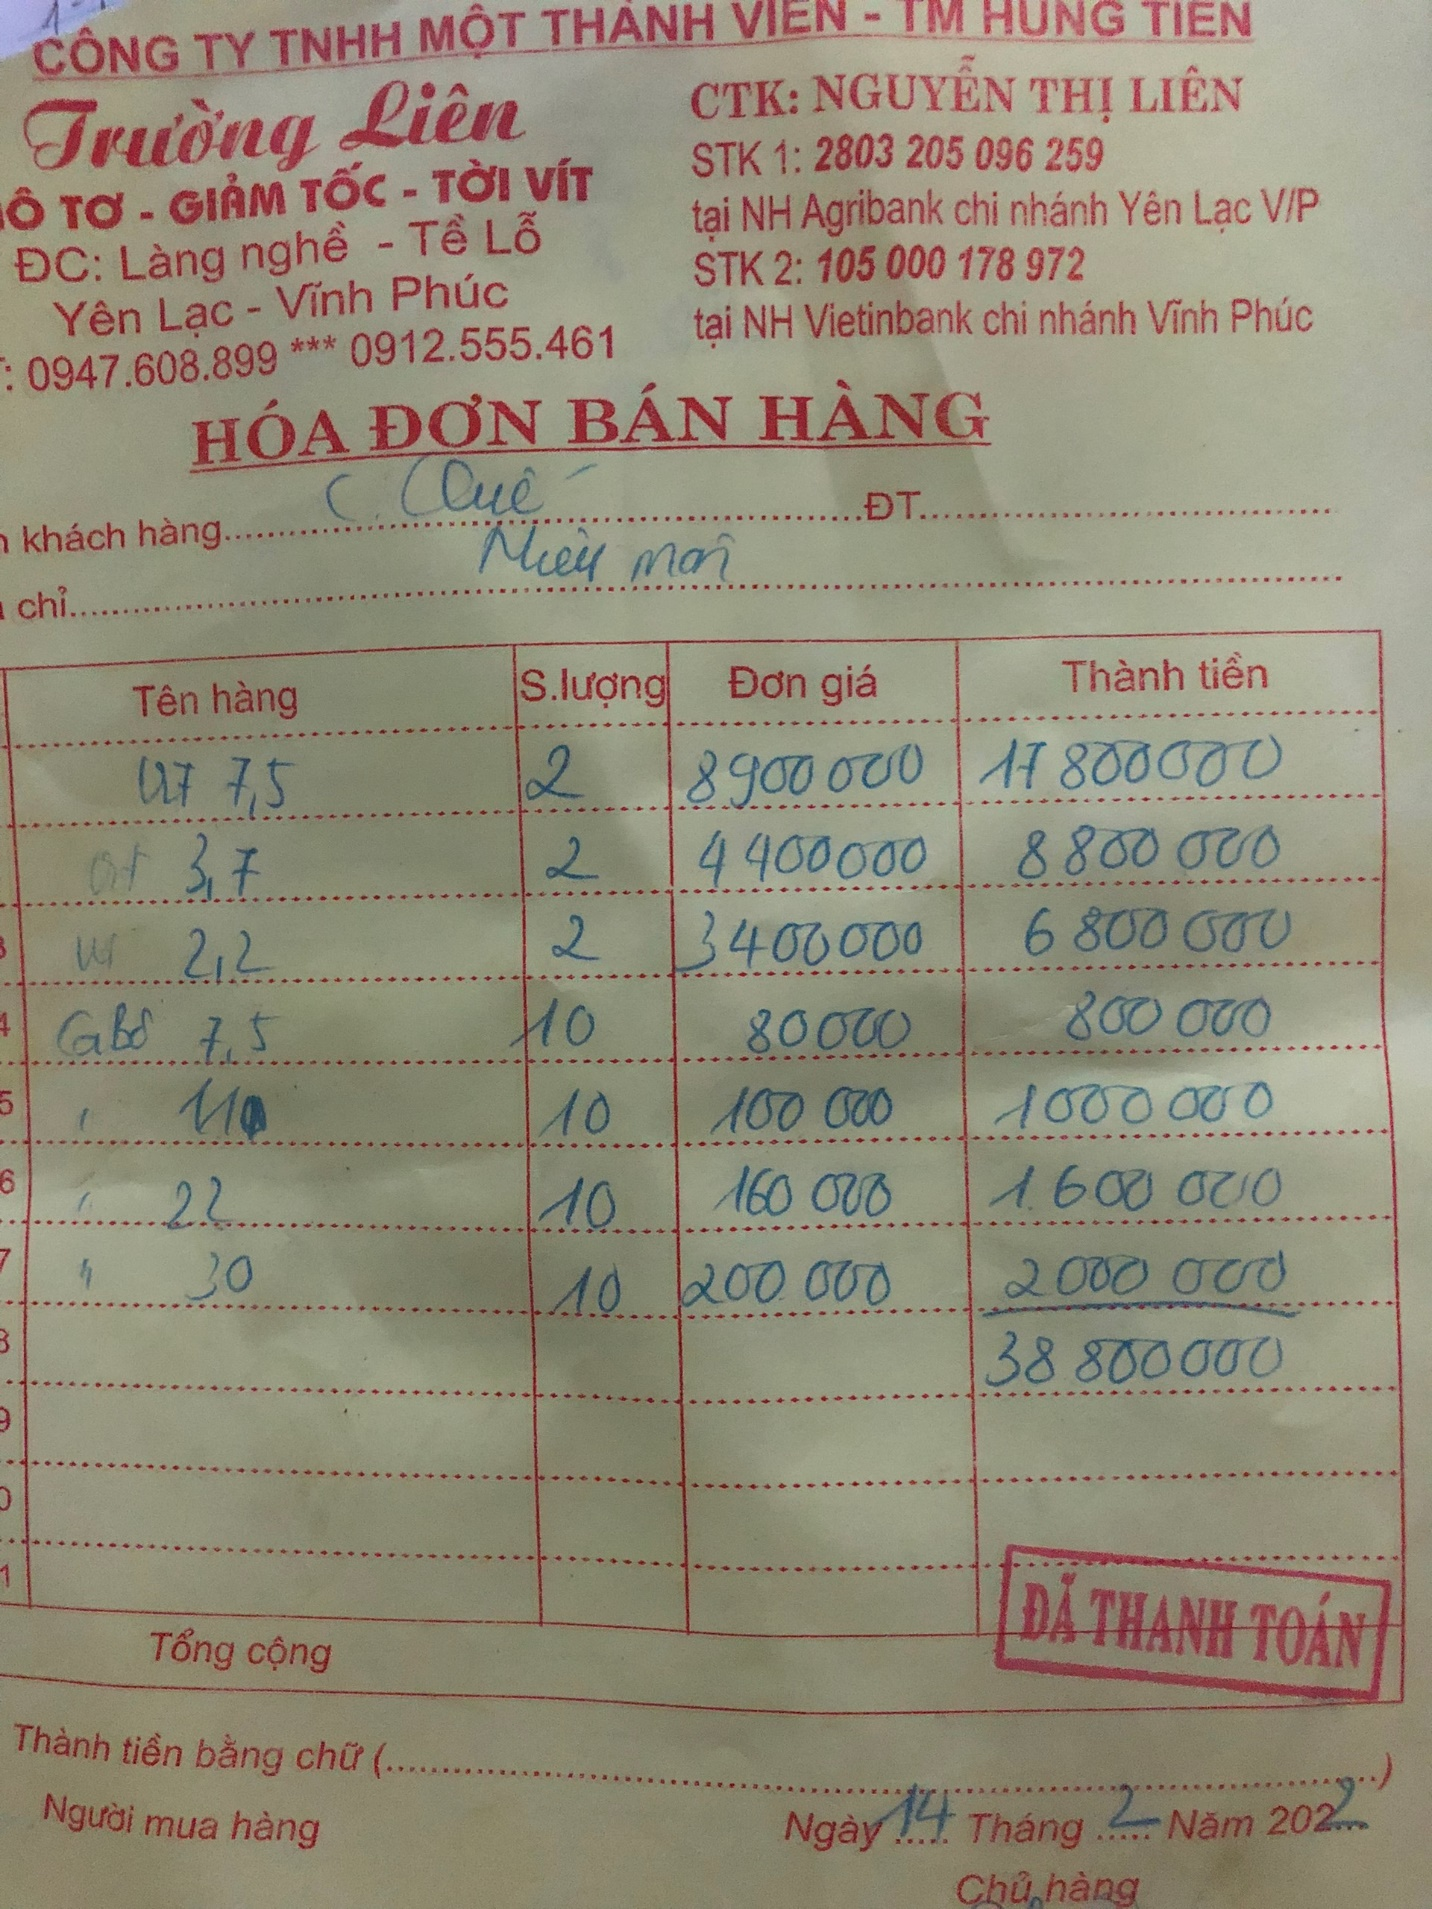 CÔNG TY TNHH MỘT THÀNH VIÊN - TM HÙNG TIẾN
Trường Liên
MÔ TƠ - GIẢM TỐC - TỜI VÍT
ĐC: Làng nghề - Tề Lỗ
Yên Lạc - Vĩnh Phúc
: 0947.608.899 *** 0912.555.461
CTK: NGUYỄN THỊ LIÊN
STK 1: 2803 205 096 259
tại NH Agribank chi nhánh Yên Lạc V/P
STK 2: 105 000 178 972
tại NH Vietinbank chi nhánh Vĩnh Phúc
HÓA ĐƠN BÁN HÀNG
khách hàng C. Quế ĐT
chỉ
Tên hàng S.lượng Đơn giá Thành tiền
7,5 2 8900 000 17 800 000
3,7 2 4 400 000 8 800 000
3 2,2 2 3 400 000 6 800 000
4 7,5 10 80 000 800 000
5 " 11 10 100 000 1 000 000
6 " 22 10 160 000 1.600 000
7 " 30 10 200 000 2 000 000
8 38 800 000
9
0
1
Tổng cộng
ĐÃ THANH TOÁN
Thành tiền bằng chữ (.....)
Người mua hàng Ngày 14 Tháng 2 Năm 2022
Chủ hàng